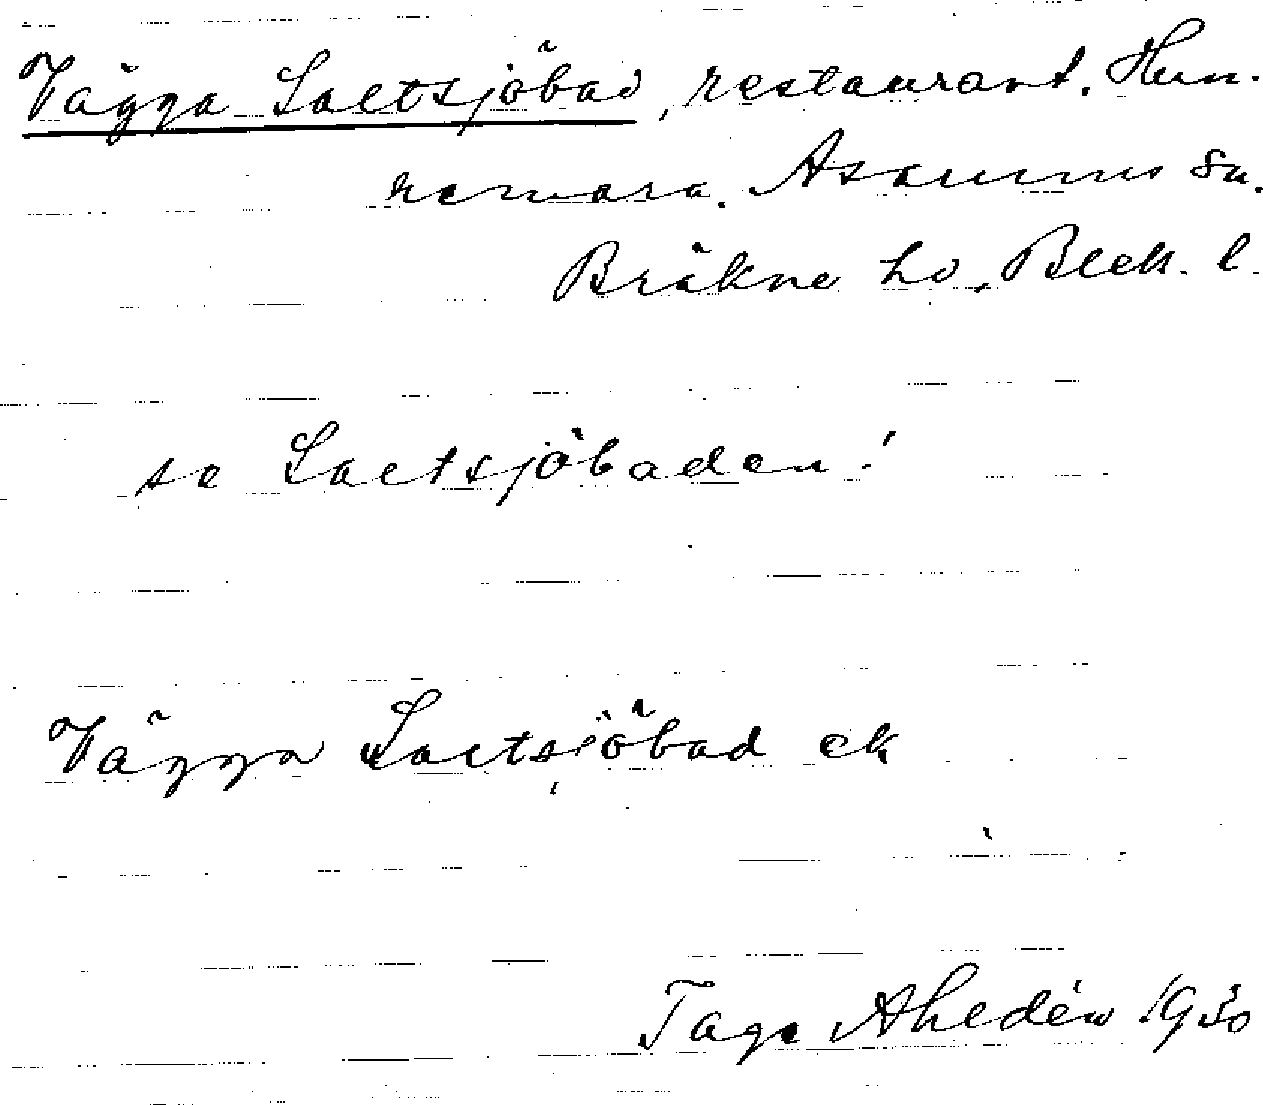 Vägga Saltsjöbad, restaurant. Hun-
nemara. Asarums sn.
Bräkne hd, Blek. l.
se Saltsjöbaden!
Vägga Saltsjöbad ek
Tage Ahldén 1930